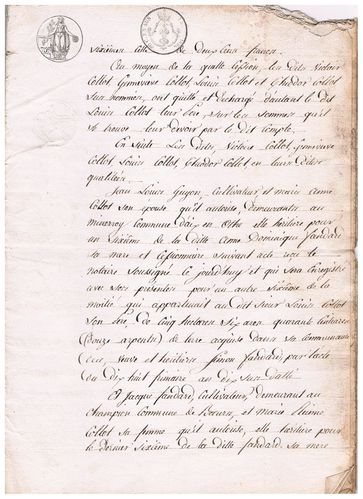 sixième lotie de deux Cens francs.
Au moyen de la quelle Cession, les dits Victoire
Collot, Geneviève Collot, Louis Collot et Theodor Collot
Sus nommés, ont quitté et déchargé d'autant le dit
Louis Collot leur les sommes qu'il
se trouve leur devoir par le dit Compte.
En Suite Les Dites, Victoire Collot, Geneviève
Collot, Louis Collot, Theodor Collot, en leurs Dites
qualités.
Jean Louis Guyon, Cultivateur, et marie anne
Collot son épouse qu'il autorise, demeurantes au
Commune d'aix en Othe elle héritière pour
un Sixième de la ditte Dominique fandard
sa mere et Cessionnaire suivant acte reçu le
notaire Soussigné le jourdhuy et qui sera Enregistré
avec ses présentes pour un autre sixième de la
moitié qui appartenait au dit sieur Louis Collot
Son père, De Cinq hectares Six ares quarante Centiares
(Douze arpents) de terre acquise dans sa Communauté
des veuve et héritiers Simon fandard par l'acte
du Dix huit frimaire an dix Sus Datté
Et Jacque fandard, Cultivateur, demeurant au
Champion Commune de Boeurs, et marie
Collot sa femme qu'il autorise, elle héritière pour
le Dernier Sixième de la ditte fandard sa mere